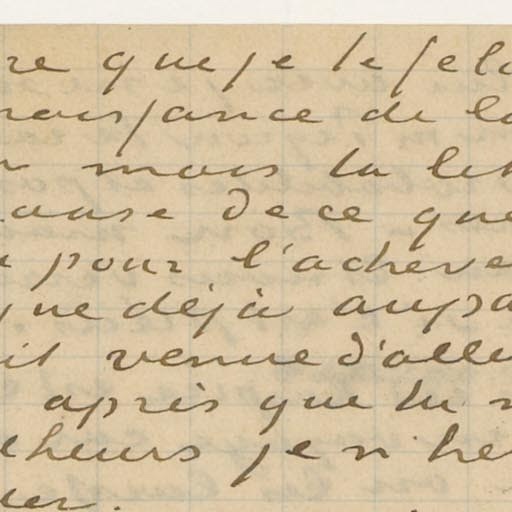 re que je te felu
noissance de la
mais ta let
cause de ce que
pour l'acheve
que déjà aupa
it venue d'alle
après que tu n
cheurs je n'he
uer.